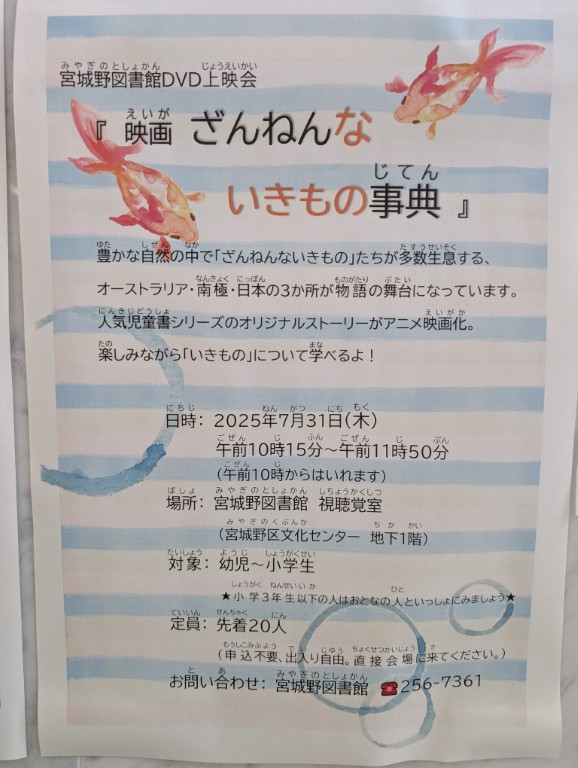 宮城野図書館DVD上映会
『映画 ざんねんな
いきもの事典』
豊かな自然の中で「ざんねんないきもの」たちが多数生息する、
オーストラリア・南極・日本の3か所が物語の舞台になっています。
人気児童書シリーズのオリジナルストーリーがアニメ映画化。
楽しみながら「いきもの」について学べるよ！
日時：2025年7月31日(木)
午前10時15分～午前11時50分
(午前10時からはいれます)
場所：宮城野図書館 視聴覚室
(宮城野区文化センター 地下1階)
対象：幼児～小学生
★小学3年生以下の人はおとなの人といっしょにみましょう★
定員：先着20人
(申込不要、出入り自由。直接会場に来てください。)
お問い合わせ：宮城野図書館 ☎256-7361